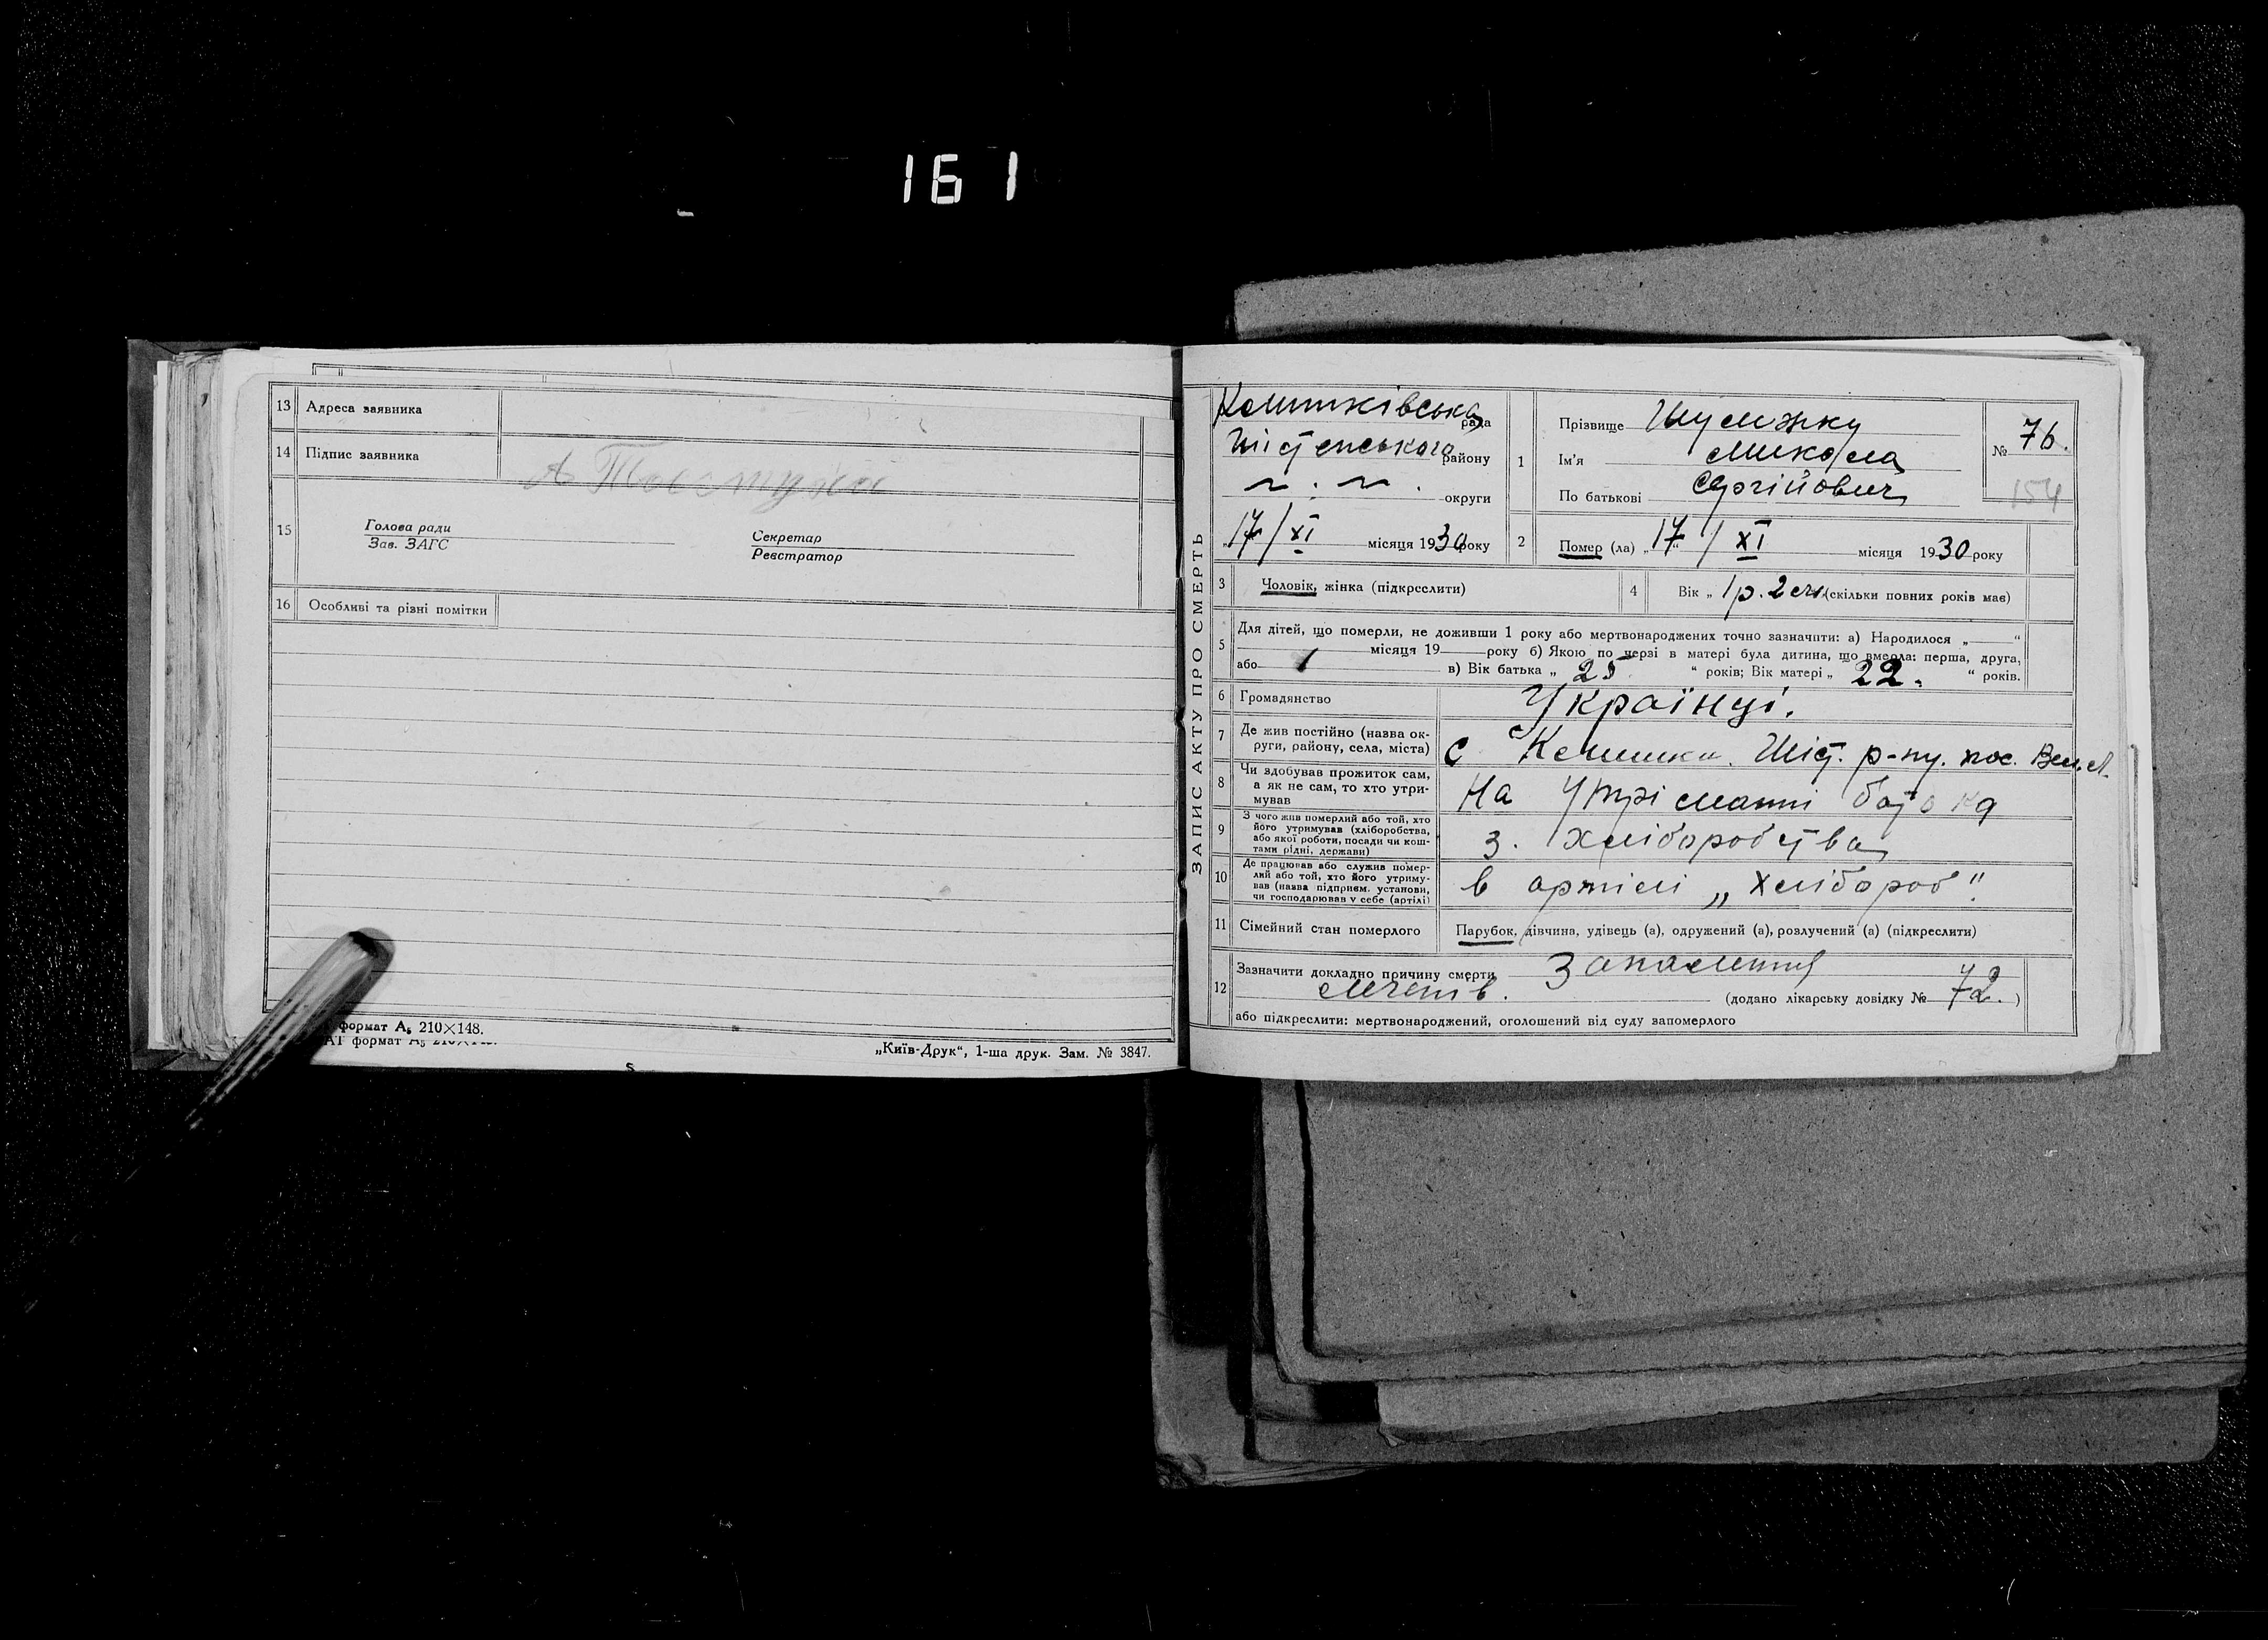 161
13 Адреса заявника
14 Підпис заявника
15 Голова ради
Зав. ЗАГС
Секретар
Реєстратор
16 Особливі та різні помітки
формат А5 210×148.
„Київ-Друк“, 1-ша друк. Зам. № 3847.
ЗАПИС АКТУ ПРО СМЕРТЬ
рада
району
округи
„17/XI місяця 1930 року
1 Прізвище
Ім'я Микола
По батькові Сергійович
№ 76.
154
2 Помер (ла) „17“ / XI місяця 1930 року
3 Чоловік, жінка (підкреслити)
4 Вік „ 1 р. 2 (скільки повних років має)
5 Для дітей, що померли, не доживши 1 року або мертвонароджених точно зазначити: а) Народилося „ “
місяця 19 року б) Якою по черзі в матері була дитина, що вмерла: перша, друга,
або 1 в) Вік батька „ 25 “ років; Вік матері „ 22. “ років.
6 Громадянство Українці.
7 Де жив постійно (назва округи, району, села, міста) с р-ну.
8 Чи здобував прожиток сам, а як не сам, то хто утримував На утріманні батька
9 З чого жив померлий або той, хто його утримував (хліборобства, або якої роботи, посади чи коштами рідні, держави) З. хліборобства
10 Де працював або служив померлий або той, хто його утримував (назва підприєм. установи, чи господарював у себе (артілі) в артілі „Хлібороб“.
11 Сімейний стан померлого Парубок, дівчина, удівець (а), одружений (а), розлучений (а) (підкреслити)
12 Зазначити докладно причину смерти
(додано лікарську довідку № 72.)
або підкреслити: мертвонароджений, оголошений від суду запомерлого